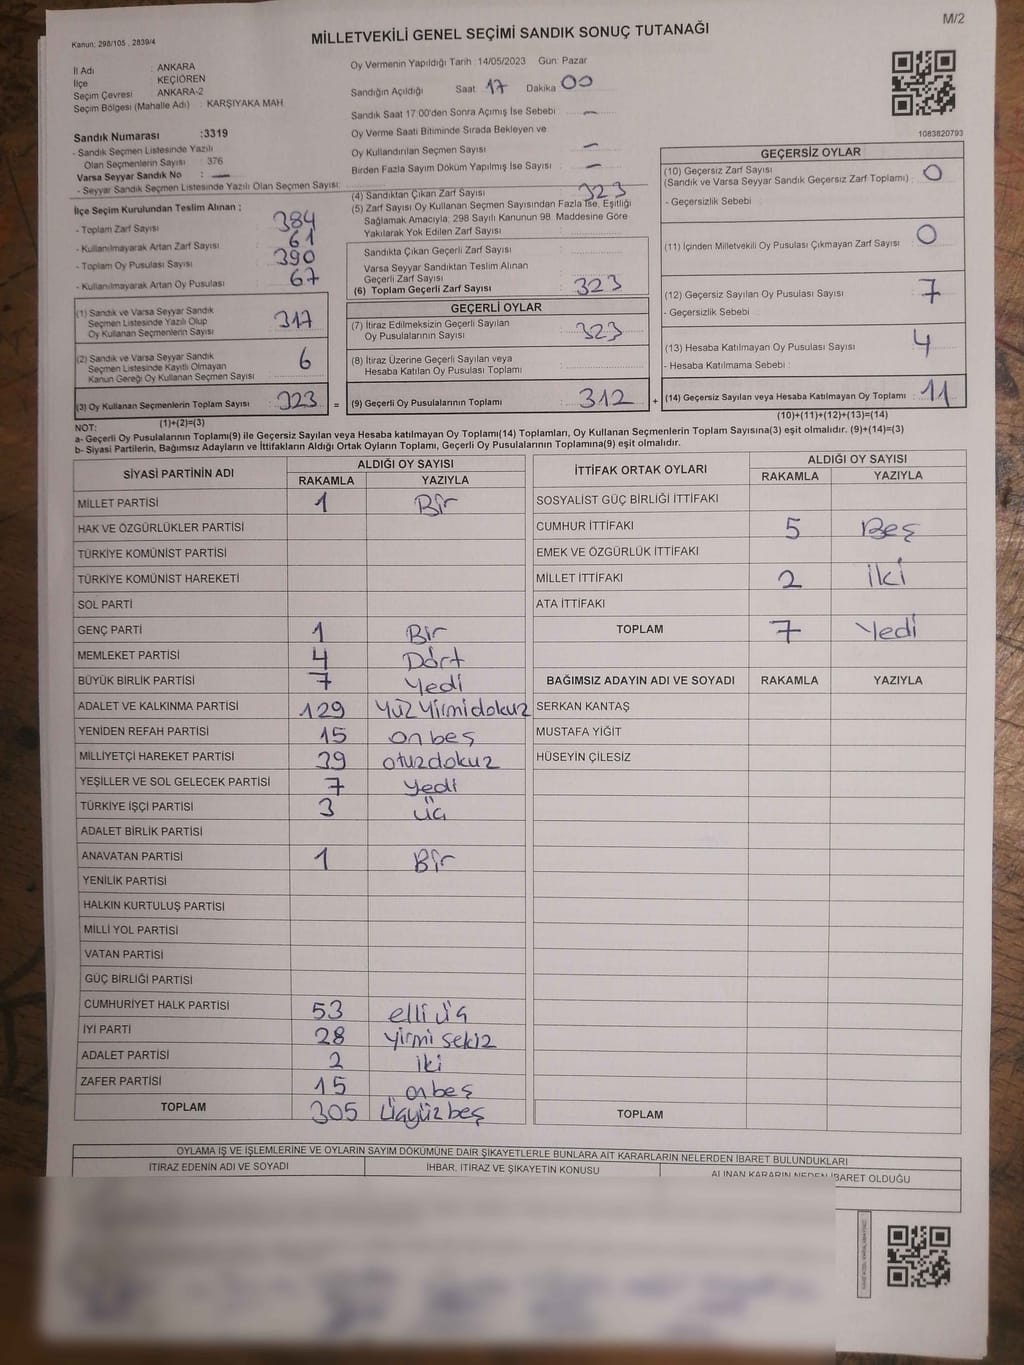 M/2
Kanun: 298/105 , 2839/4
MİLLETVEKİLİ GENEL SEÇİMİ SANDIK SONUÇ TUTANAĞI
İl Adı : ANKARA
İlçe KEÇİÖREN
Seçim Çevresi ANKARA-2
Seçim Bölgesi (Mahalle Adı) : KARŞIYAKA MAH
Sandık Numarası :3319
- Sandık Seçmen Listesinde Yazılı
Olan Seçmenlerin Sayısı 376
Varsa Seyyar Sandık No : —
- Seyyar Sandık Seçmen Listesinde Yazılı Olan Seçmen Sayısı:
Oy Vermenin Yapıldığı Tarih :14/05/2023 Gün: Pazar
Sandığın Açıldığı Saat 17 Dakika 00
Sandık Saat 17:00'den Sonra Açımış İse Sebebi —
Oy Verme Saati Bitiminde Sırada Bekleyen ve
Oy Kullandırılan Seçmen Sayısı —
Birden Fazla Sayım Döküm Yapılmış İse Sayısı —
1083820793
İlçe Seçim Kurulundan Teslim Alınan ;
- Toplam Zarf Sayısı 384
- Kullanılmayarak Artan Zarf Sayısı 61
- Toplam Oy Pusulası Sayısı 390
- Kullanılmayarak Artan Oy Pusulası 67
(1) Sandık ve Varsa Seyyar Sandık
Seçmen Listesinde Yazılı Olup
Oy Kullanan Seçmenlerin Sayısı 317
(2) Sandık ve Varsa Seyyar Sandık
Seçmen Listesinde Kayıtlı Olmayan
Kanun Gereği Oy Kullanan Seçmen Sayısı 6
(3) Oy Kullanan Seçmenlerin Toplam Sayısı 323 =
(1)+(2)=(3)
(4) Sandıktan Çıkan Zarf Sayısı 323
(5) Zarf Sayısı Oy Kullanan Seçmen Sayısından Fazla İse, Eşitliği
Sağlamak Amacıyla; 298 Sayılı Kanunun 98. Maddesine Göre
Yakılarak Yok Edilen Zarf Sayısı
Sandıkta Çıkan Geçerli Zarf Sayısı
Varsa Seyyar Sandıktan Teslim Alınan
Geçerli Zarf Sayısı
(6) Toplam Geçerli Zarf Sayısı 323
GEÇERLİ OYLAR
(7) İtiraz Edilmeksizin Geçerli Sayılan
Oy Pusulalarının Sayısı 323
(8) İtiraz Üzerine Geçerli Sayılan veya
Hesaba Katılan Oy Pusulası Toplamı
(9) Geçerli Oy Pusulalarının Toplamı 312 +
GEÇERSİZ OYLAR
(10) Geçersiz Zarf Sayısı
(Sandık ve Varsa Seyyar Sandık Geçersiz Zarf Toplamı) : 0
- Geçersizlik Sebebi
(11) İçinden Milletvekili Oy Pusulası Çıkmayan Zarf Sayısı 0
(12) Geçersiz Sayılan Oy Pusulası Sayısı 7
- Geçersizlik Sebebi :
(13) Hesaba Katılmayan Oy Pusulası Sayısı 4
- Hesaba Katılmama Sebebi :
(14) Geçersiz Sayılan veya Hesaba Katılmayan Oy Toplamı : 11
(10)+(11)+(12)+(13)=(14)
NOT:
a- Geçerli Oy Pusulalarının Toplamı(9) ile Geçersiz Sayılan veya Hesaba katılmayan Oy Toplamı(14) Toplamları, Oy Kullanan Seçmenlerin Toplam Sayısına(3) eşit olmalıdır. (9)+(14)=(3)
b- Siyasi Partilerin, Bağımsız Adayların ve İttifakların Aldığı Ortak Oyların Toplamı, Geçerli Oy Pusulalarının Toplamına(9) eşit olmalıdır.
SİYASİ PARTİNİN ADI ALDIĞI OY SAYISI
RAKAMLA YAZIYLA
MİLLET PARTİSİ 1 Bir
HAK VE ÖZGÜRLÜKLER PARTİSİ
TÜRKİYE KOMÜNİST PARTİSİ
TÜRKİYE KOMÜNİST HAREKETİ
SOL PARTİ
GENÇ PARTİ 1 Bir
MEMLEKET PARTİSİ 4 Dört
BÜYÜK BİRLİK PARTİSİ 7 Yedi
ADALET VE KALKINMA PARTİSİ 129 Yüz Yirmidokuz
YENİDEN REFAH PARTİSİ 15 onbeş
MİLLİYETÇİ HAREKET PARTİSİ 39 otuzdokuz
YEŞİLLER VE SOL GELECEK PARTİSİ 7 Yedi
TÜRKİYE İŞÇİ PARTİSİ 3 üç
ADALET BİRLİK PARTİSİ
ANAVATAN PARTİSİ 1 Bir
YENİLİK PARTİSİ
HALKIN KURTULUŞ PARTİSİ
MİLLİ YOL PARTİSİ
VATAN PARTİSİ
GÜÇ BİRLİĞİ PARTİSİ
CUMHURİYET HALK PARTİSİ 53 elli üç
İYİ PARTİ 28 Yirmi sekiz
ADALET PARTİSİ 2 iki
ZAFER PARTİSİ 15 onbeş
TOPLAM 305 Üçyüzbeş
İTTİFAK ORTAK OYLARI ALDIĞI OY SAYISI
RAKAMLA YAZIYLA
SOSYALİST GÜÇ BİRLİĞİ İTTİFAKI
CUMHUR İTTİFAKI 5 Beş
EMEK VE ÖZGÜRLÜK İTTİFAKI
MİLLET İTTİFAKI 2 İki
ATA İTTİFAKI
TOPLAM 7 Yedi
BAĞIMSIZ ADAYIN ADI VE SOYADI RAKAMLA YAZIYLA
SERKAN KANTAŞ
MUSTAFA YİĞİT
HÜSEYİN ÇİLESİZ
TOPLAM
OYLAMA İŞ VE İŞLEMLERİNE VE OYLARIN SAYIM DÖKÜMÜNE DAİR ŞİKAYETLERLE BUNLARA AİT KARARLARIN NELERDEN İBARET BULUNDUKLARI
İTİRAZ EDENİN ADI VE SOYADI İHBAR, İTİRAZ VE ŞİKAYETİN KONUSU ALINAN KARARIN NEDEN İBARET OLDUĞU